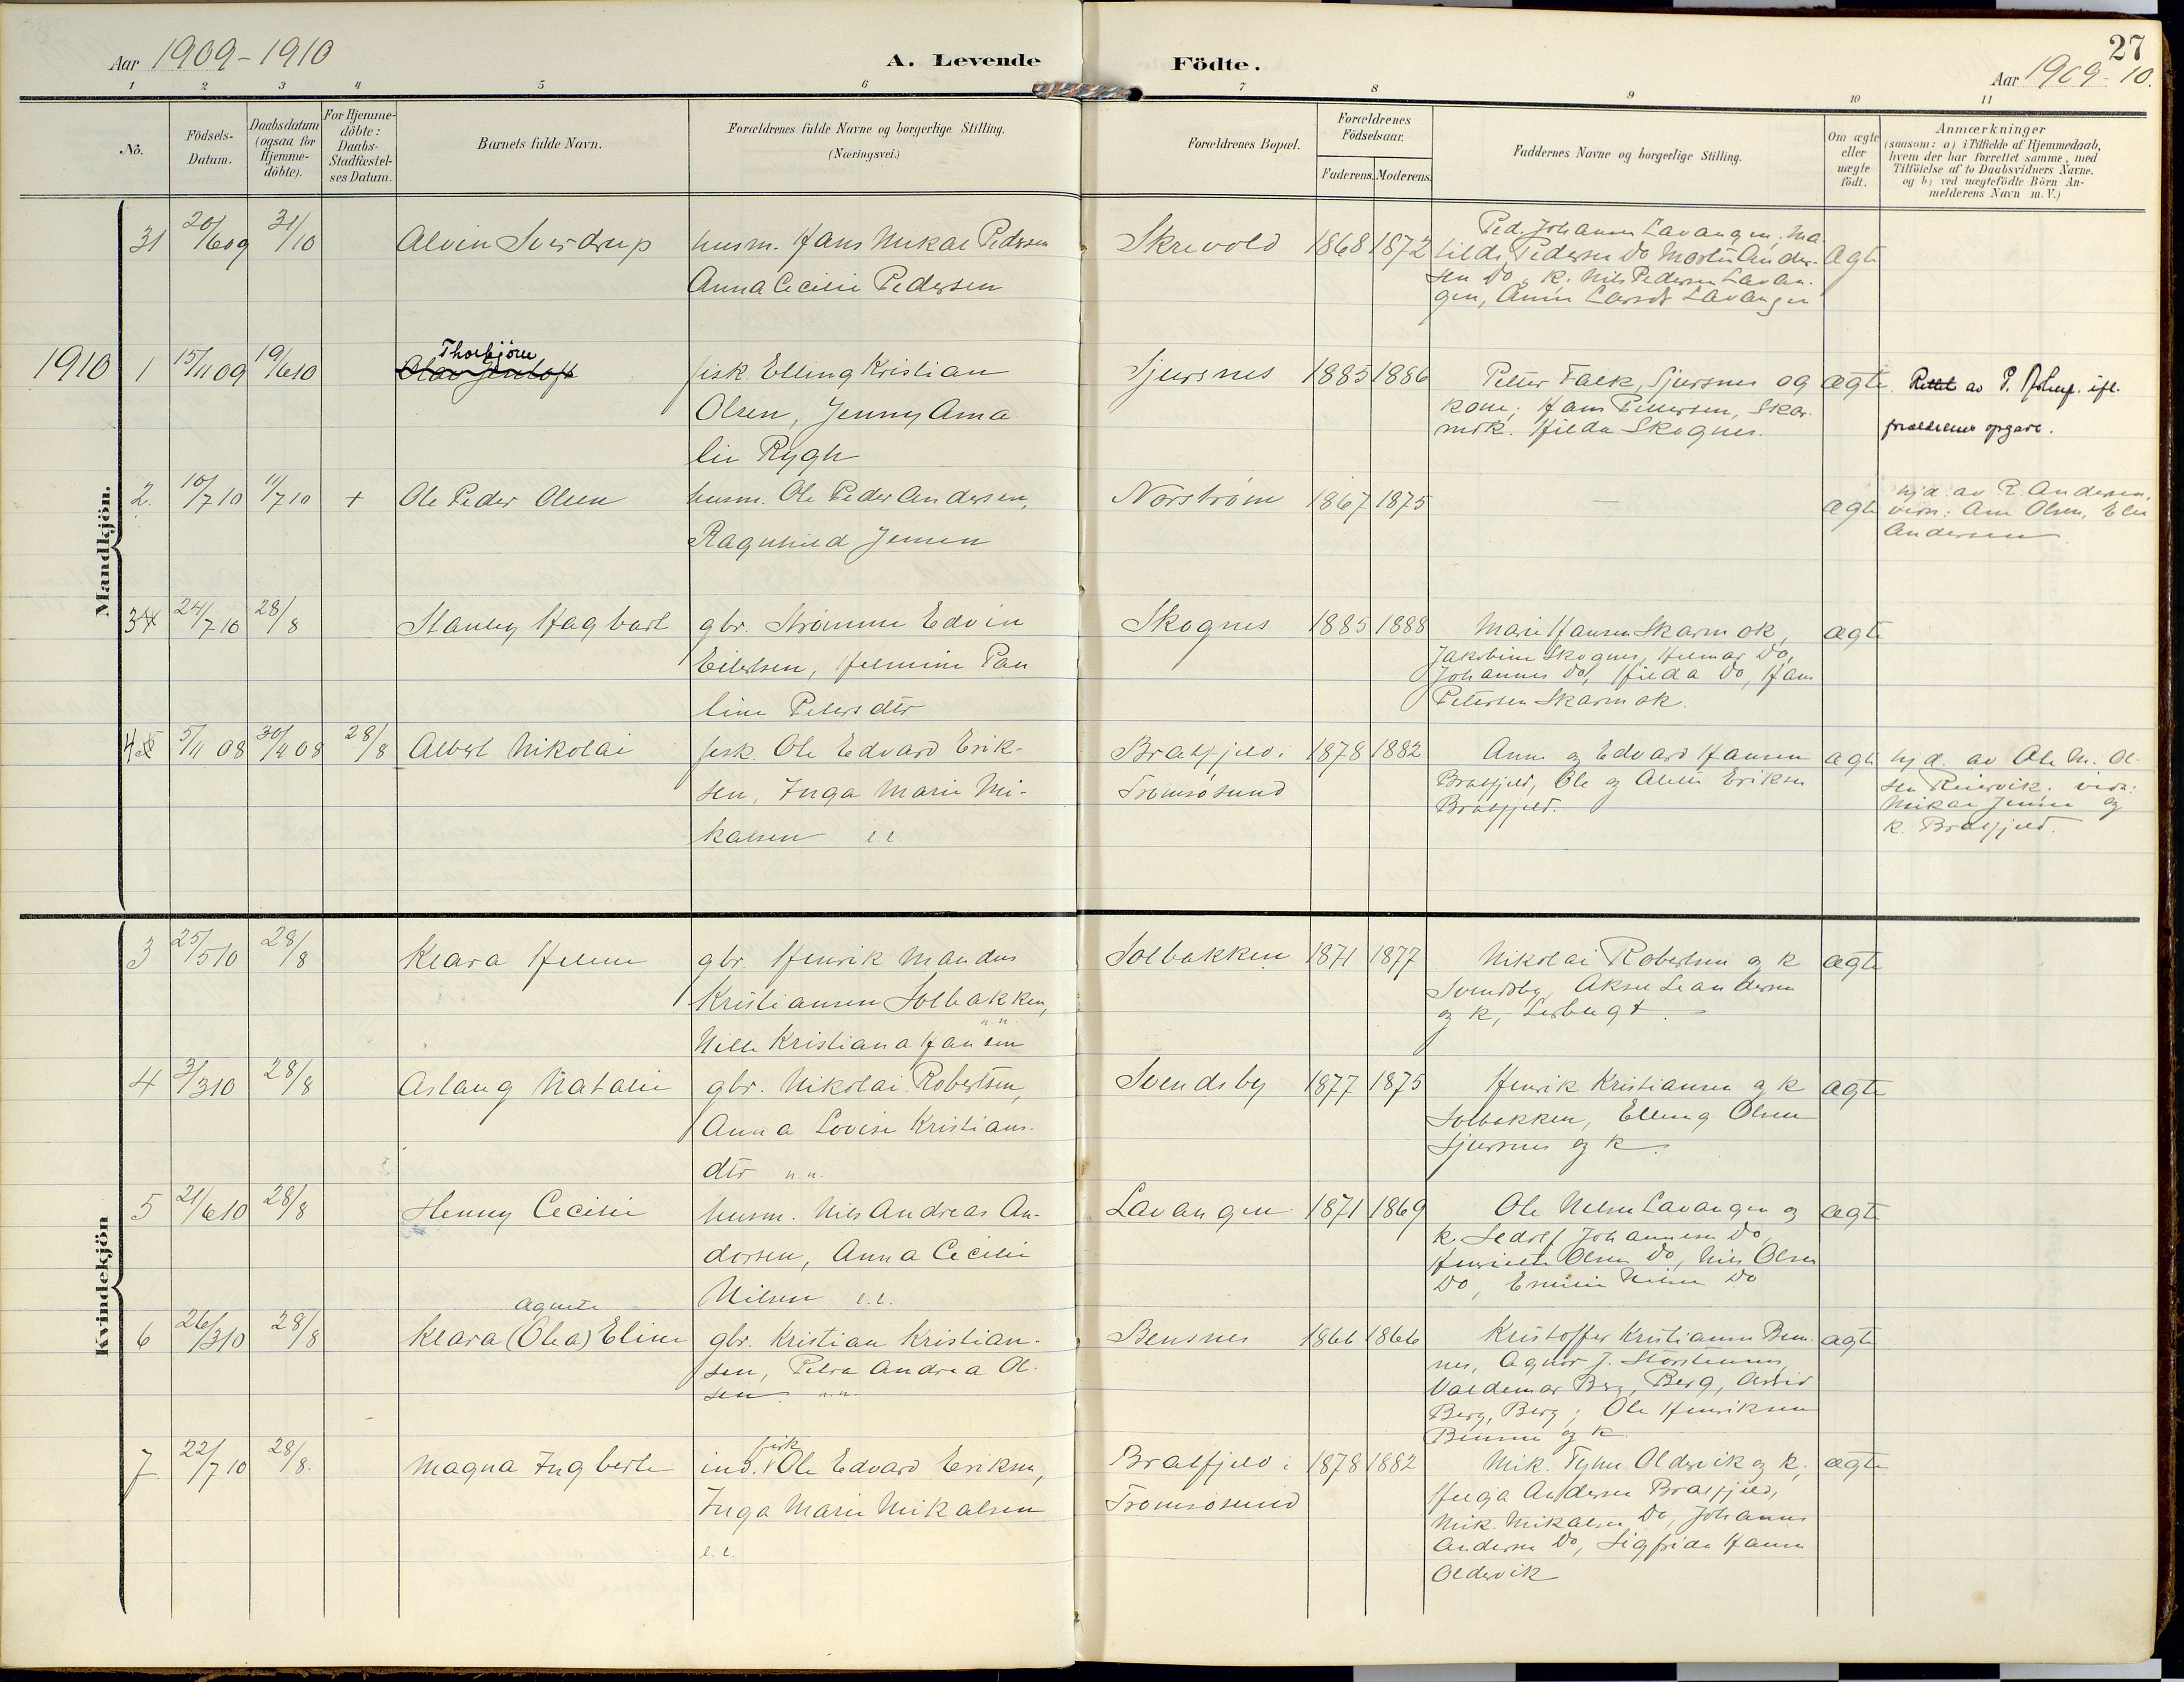 27
Aar 1909-1910 A. Levende Födte. Aar 1909-10.
1 2 3 4 5 6 7 8 9 10 11
No.
Födsels-
Datum.
Daabsdatum
(ogsaa for
Hjemme-
döbte).
For Hjemme-
döbte:
Daabs-
Stadfæstel-
ses Datum.
Barnets fulde Navn.
Forældrenes fulde Navne og borgerlige Stilling.
(Næringsvei.)
Forældrenes Bopæl.
Forældrenes
Födselsaar.
Faderens. Moderens.
Faddernes Navne og borgerlige Stilling.
Om ægte
eller
uægte
födt.
Anmærkninger
(saasom: a) i Tilfælde af Hjemmedaab,
hvem der har forrettet samme, med
Tilföielse af to Daabsvidners Navne.
og b) ved uægtefödte Börn An-
melderens Navn m. V.)
Mandkjön.
31 20/6 09 31/10 Alvin Sverdrup
husm. Hans Mikal Pedersen
Anna Cecilie Pedersen
Skrevold 1868 1872
Ped. Johansen Lavangen, Ma-
tilde Pedersen Do Martin Ander-
sen Do, k. Nils Pedersen Lavan-
gen, Anna Larsdt Lavangen
ægte
1910 1 15/11 09 19/6 10
Thorbjörn
fisk. Elling Kristian
Olsen, Jenny Ama
lie Rygh
Sjursnes 1885 1886
Petter Falk, Sjursnes og
kone; Hans Pettersen, Skar-
mok. Hilda Skognes.
ægte
Rettet av P. ifl.
forældrenes opgave.
2. 10/7 10 11/7 10 + Ole Peder Olsen
husm. Ole Peder Andersen,
Ragnhild Jensen
Norstrøm 1867 1875
—
ægte
hjd. av R. Andersen,
vidn: Ane Olsen, Elen
Andersen
3 24/7 10 28/8 Stanley Hagbart
gbr. Strømme Edvin
Eilertsen, Helmine Pau
line Petersdtr
Skognes 1885 1888
Marie Hansen Skarmok,
Jakobine Skognes, Hilmar Do,
Johannes Do, Hilda Do, Hans
Petersen Skarmok.
ægte
4 5/11 08 30/11 08 28/8 Albert Nikolai
fisk. Ole Edvard Erik-
sen, Inga Marie Mi-
kalsen l.l.
Bratfjeld i
Tromsøsund
1878 1882
Anne og Edvard Hansen
Bratfjeld, Ole og Aline Eriksen
Bratfjeld.
ægte
hjd. av Ole M. Ol-
sen Reiervik. vidn:
Mikal Jensen og
k. Bratfjeld.
Kvindekjön
3 25/5 10 28/8 Klara Helene
gbr. Henrik Mandus
Kristiansen Solbakken,
Nille Kristiana Hansen
n.n.
Solbakken 1871 1877
Nikolai Robertsen og k
Svendsby, Aksel Leandersen
og k, Lerbugt.
ægte
4 3/3 10 28/8 Aslaug Natalie
gbr. Nikolai Robertsen,
Anna Lovise Kristians-
dtr n.n.
Svendsby 1877 1875
Henrik Kristiansen og k
Solbakken, Elling Olsen
Sjursnes og k.
ægte
5 21/6 10 28/8 Henny Cecilie
husm. Nils Andreas An-
dersen, Anna Cecilie
Nilsen l.l.
Lavangen 1871 1869
Ole Nilsen Lavangen og
k. Sedolf Johannesen Do,
Henriette Olsen Do, Nils Olsen
Do, Emilie Nilsen Do
ægte
Agnete
6 26/3 10 28/8 Klara (Olea) Eline
gbr. Kristian Kristian-
sen, Petra Andrea Ol-
sen n.n.
Bensnes 1866 1866
Kristoffer Kristiansen Bens-
nes, Agnor J. Storstennes,
Valdemar Berg, Berg, Astrid
Berg, Berg; Ole Henriksen
Bensnes og k
ægte
7 22/7 10 28/8. Magna Ingberte
fisk
ind. Ole Edvard Eriksen,
Inga Marie Mikalsen
l.l.
Bratfjeld i
Tromsøsund
1878 1882
Mik. Oldervik og k,
Helga Andersen Bratfjeld,
Mik. Mikalsen Do, Johannes
Andersen Do, Sigfride Hansen
Oldervik
ægte